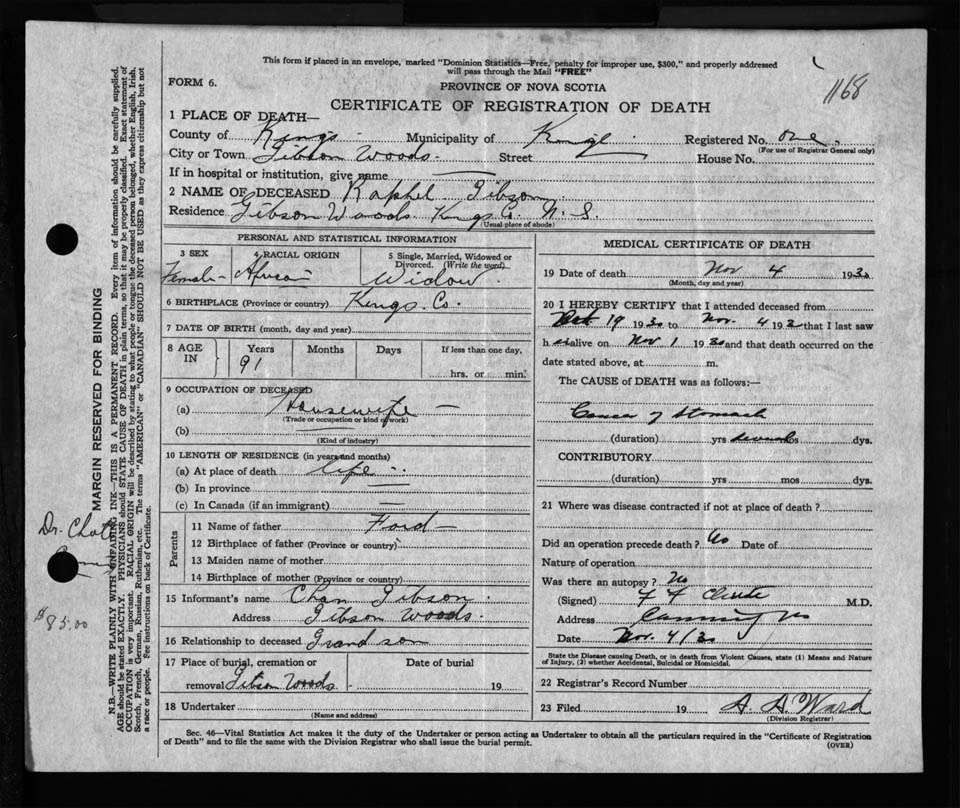 This form if placed in an envelope, marked "Dominion Statistics—Free, penalty for improper use, $300," and properly addressed
will pass through the Mail "FREE"
1168
FORM 6.
PROVINCE OF NOVA SCOTIA
CERTIFICATE OF REGISTRATION OF DEATH
1 PLACE OF DEATH—
County of Kings Municipality of Kings Registered No. one
(For use of Registrar General only)
City or Town Gibson Woods Street House No.
If in hospital or institution, give name —
2 NAME OF DECEASED Raphel Gibson
Residence Gibson Woods Kings Co. N. S.
(Usual place of abode)
PERSONAL AND STATISTICAL INFORMATION
3 SEX 4 RACIAL ORIGIN 5 Single, Married, Widowed or
Divorced. (Write the word)
Female Widow
6 BIRTHPLACE (Province or country) Kings Co.
7 DATE OF BIRTH (month, day and year)
8 AGE IN Years Months Days If less than one day,
91 hrs. or min.
9 OCCUPATION OF DECEASED
(a) Housewife —
(Trade or occupation or kind of work)
(b)
(Kind of industry)
10 LENGTH OF RESIDENCE (in years and months)
(a) At place of death life
(b) In province —
(c) In Canada (if an immigrant) —
Parents
11 Name of father Ford —
12 Birthplace of father (Province or country)
13 Maiden name of mother
14 Birthplace of mother (Province or country)
15 Informant's name Gibson
Address Gibson Woods.
16 Relationship to deceased Grandson
17 Place of burial, cremation or Date of burial
removal Gibson Woods - 19
18 Undertaker
(Name and address)
MEDICAL CERTIFICATE OF DEATH
19 Date of death Nov 4 1930
(Month, day and year)
20 I HEREBY CERTIFY that I attended deceased from
19 1930 to Nov. 4 1930 that I last saw
h er alive on Nov 1 1930 and that death occurred on the
date stated above, at m.
The CAUSE of DEATH was as follows:—
Cancer of Stomach
(duration) yrs several mos dys.
CONTRIBUTORY
(duration) yrs mos dys.
21 Where was disease contracted if not at place of death?
Did an operation precede death? No Date of
Nature of operation
Was there an autopsy? No
(Signed) M.D.
Address Canning NS
Date Nov. 4/30
State the Disease causing Death, or in death from Violent Causes, state (1) Means and Nature
of Injury, (2) whether Accidental, Suicidal or Homicidal.
22 Registrar's Record Number
23 Filed 19 Ward
(Division Registrar)
Sec. 46—Vital Statistics Act makes it the duty of the Undertaker or person acting as Undertaker to obtain all the particulars required in the "Certificate of Registration
of Death" and to file the same with the Division Registrar who shall issue the burial permit.
(OVER)
MARGIN RESERVED FOR BINDING
N.B.—WRITE PLAINLY WITH UNFADING INK—THIS IS A PERMANENT RECORD. Every item of information should be carefully supplied.
AGE should be stated EXACTLY. PHYSICIANS should STATE CAUSE OF DEATH in plain terms, so that it may be properly classified. Exact statement of
OCCUPATION is very important. RACIAL ORIGIN will be described by stating to what people or tongue the deceased person belonged, whether English, Irish,
Scotch, French, German, Russian, Ruthenian, etc. The terms "AMERICAN" or "CANADIAN" SHOULD NOT BE USED as they express citizenship but not
a race or people. See instructions on back of Certificate.
Dr.
$85.00